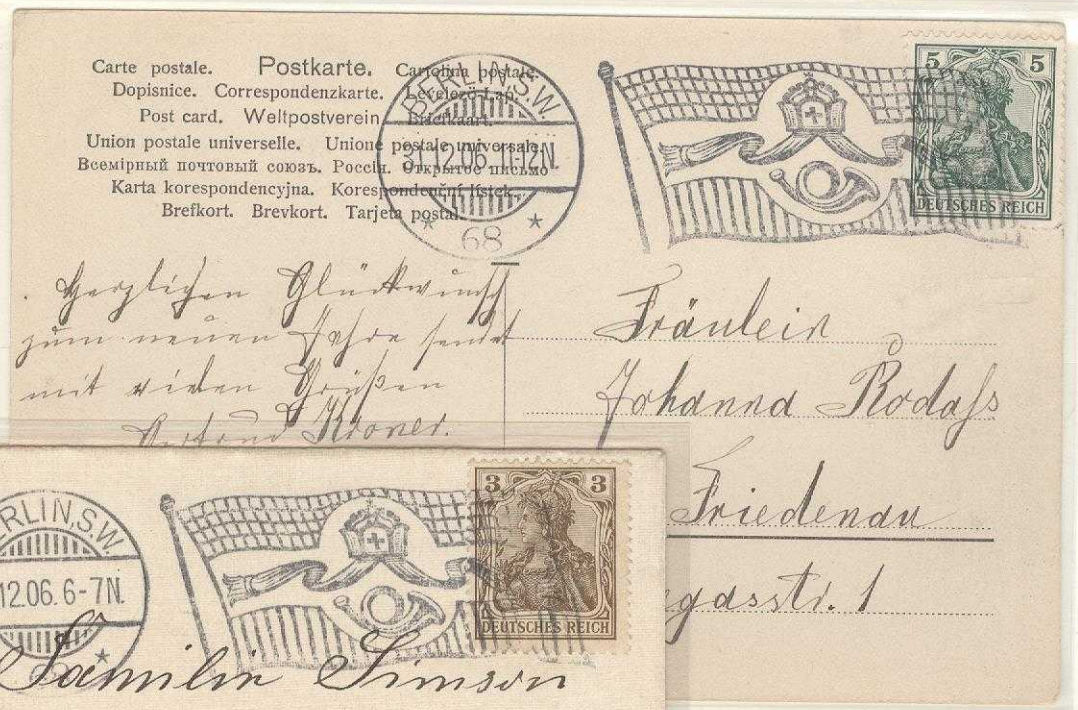 Carte postale. Postkarte. Cartolina postale.
Dopisnice. Correspondenzkarte. Levelező-Lap.
Post card. Weltpostverein. Briefkaart.
Union postale universelle. Unione postale universale.
Всемірный почтовый союзъ. Россія. Открытое письмо
Karta korespondencyjna. Korespondenční lístek.
Brefkort. Brevkort. Tarjeta postal.
BERLIN, S.W.
31.12.06. 11-12N.
* 68 *
5 5
DEUTSCHES REICH
Herzlichen Glückwunsch
zum neuen Jahre sendet
mit vielen Grüßen
Gertrud Kroner.
Fräulein
Johanna
Friedenau
gasstr. 1
ERLIN, S.W.
12.06. 6-7N.
*
3 3
DEUTSCHES REICH
Familie Simson